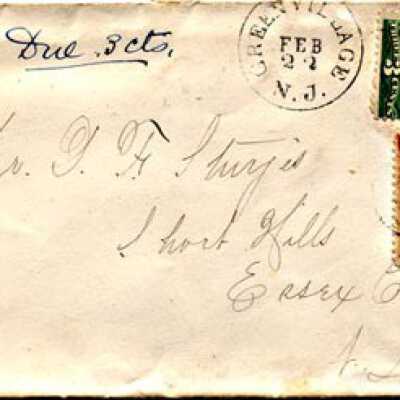 Due 3cts.
GREEN VILLAGE
FEB
22
N.J.
3
r. D. F. Sturgis
Short Hills
Essex C
N.J.